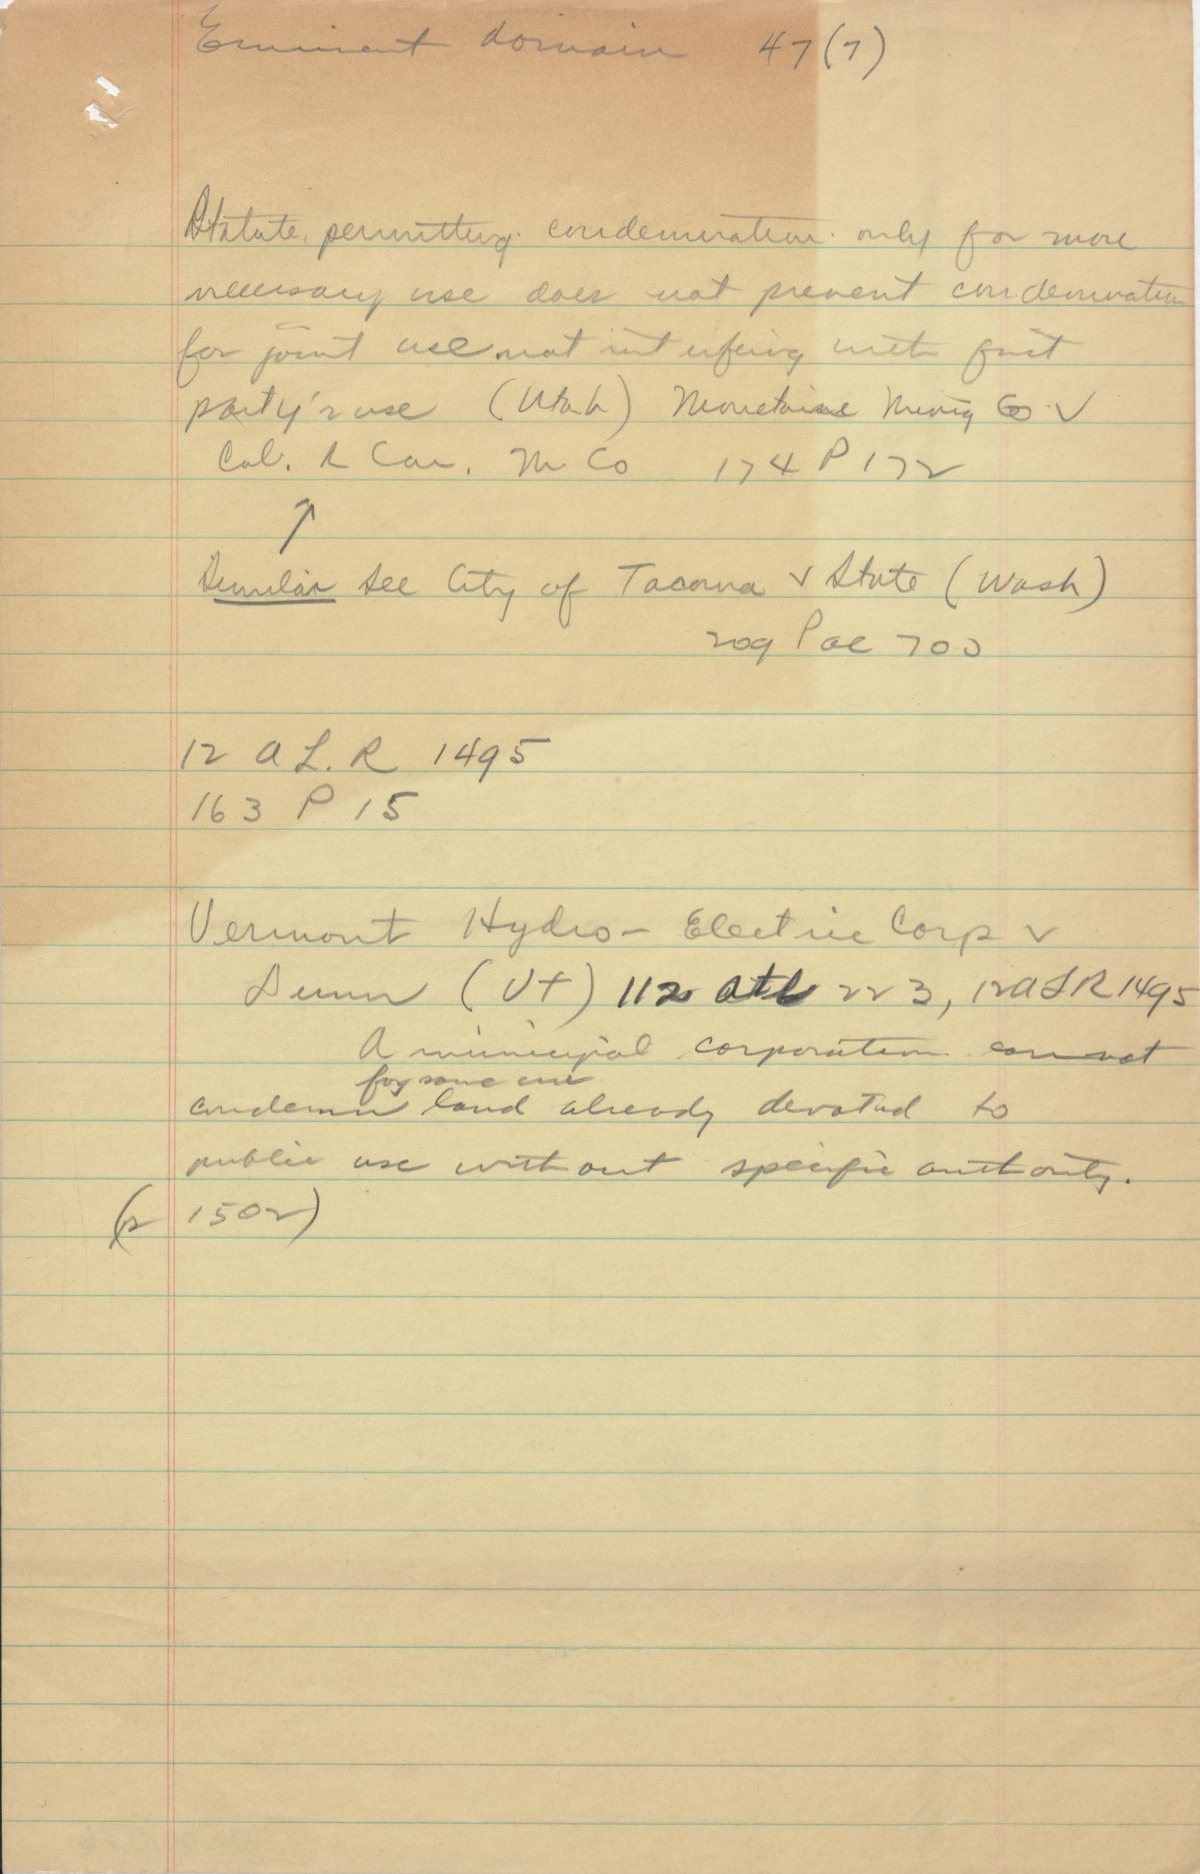 Eminent domain 47(7)
Statute permitting condemnation only for more
necessary use does not prevent condemnation
for joint use not interfering with first
party's use (Utah) Monetaire Mining Co v
Col. R Con. M Co 174 P 172
↑
Similar see City of Tacoma v State (Wash)
209 Pac 700
12 A L. R 1495
163 P 15
Vermont Hydro-Electric Corp v
Dunn (Vt) 112 Atl 223, 12 A L R 1495
A municipal corporation cannot
for same use
condemn land already devoted to
public use without specific authority.
(p 1502)